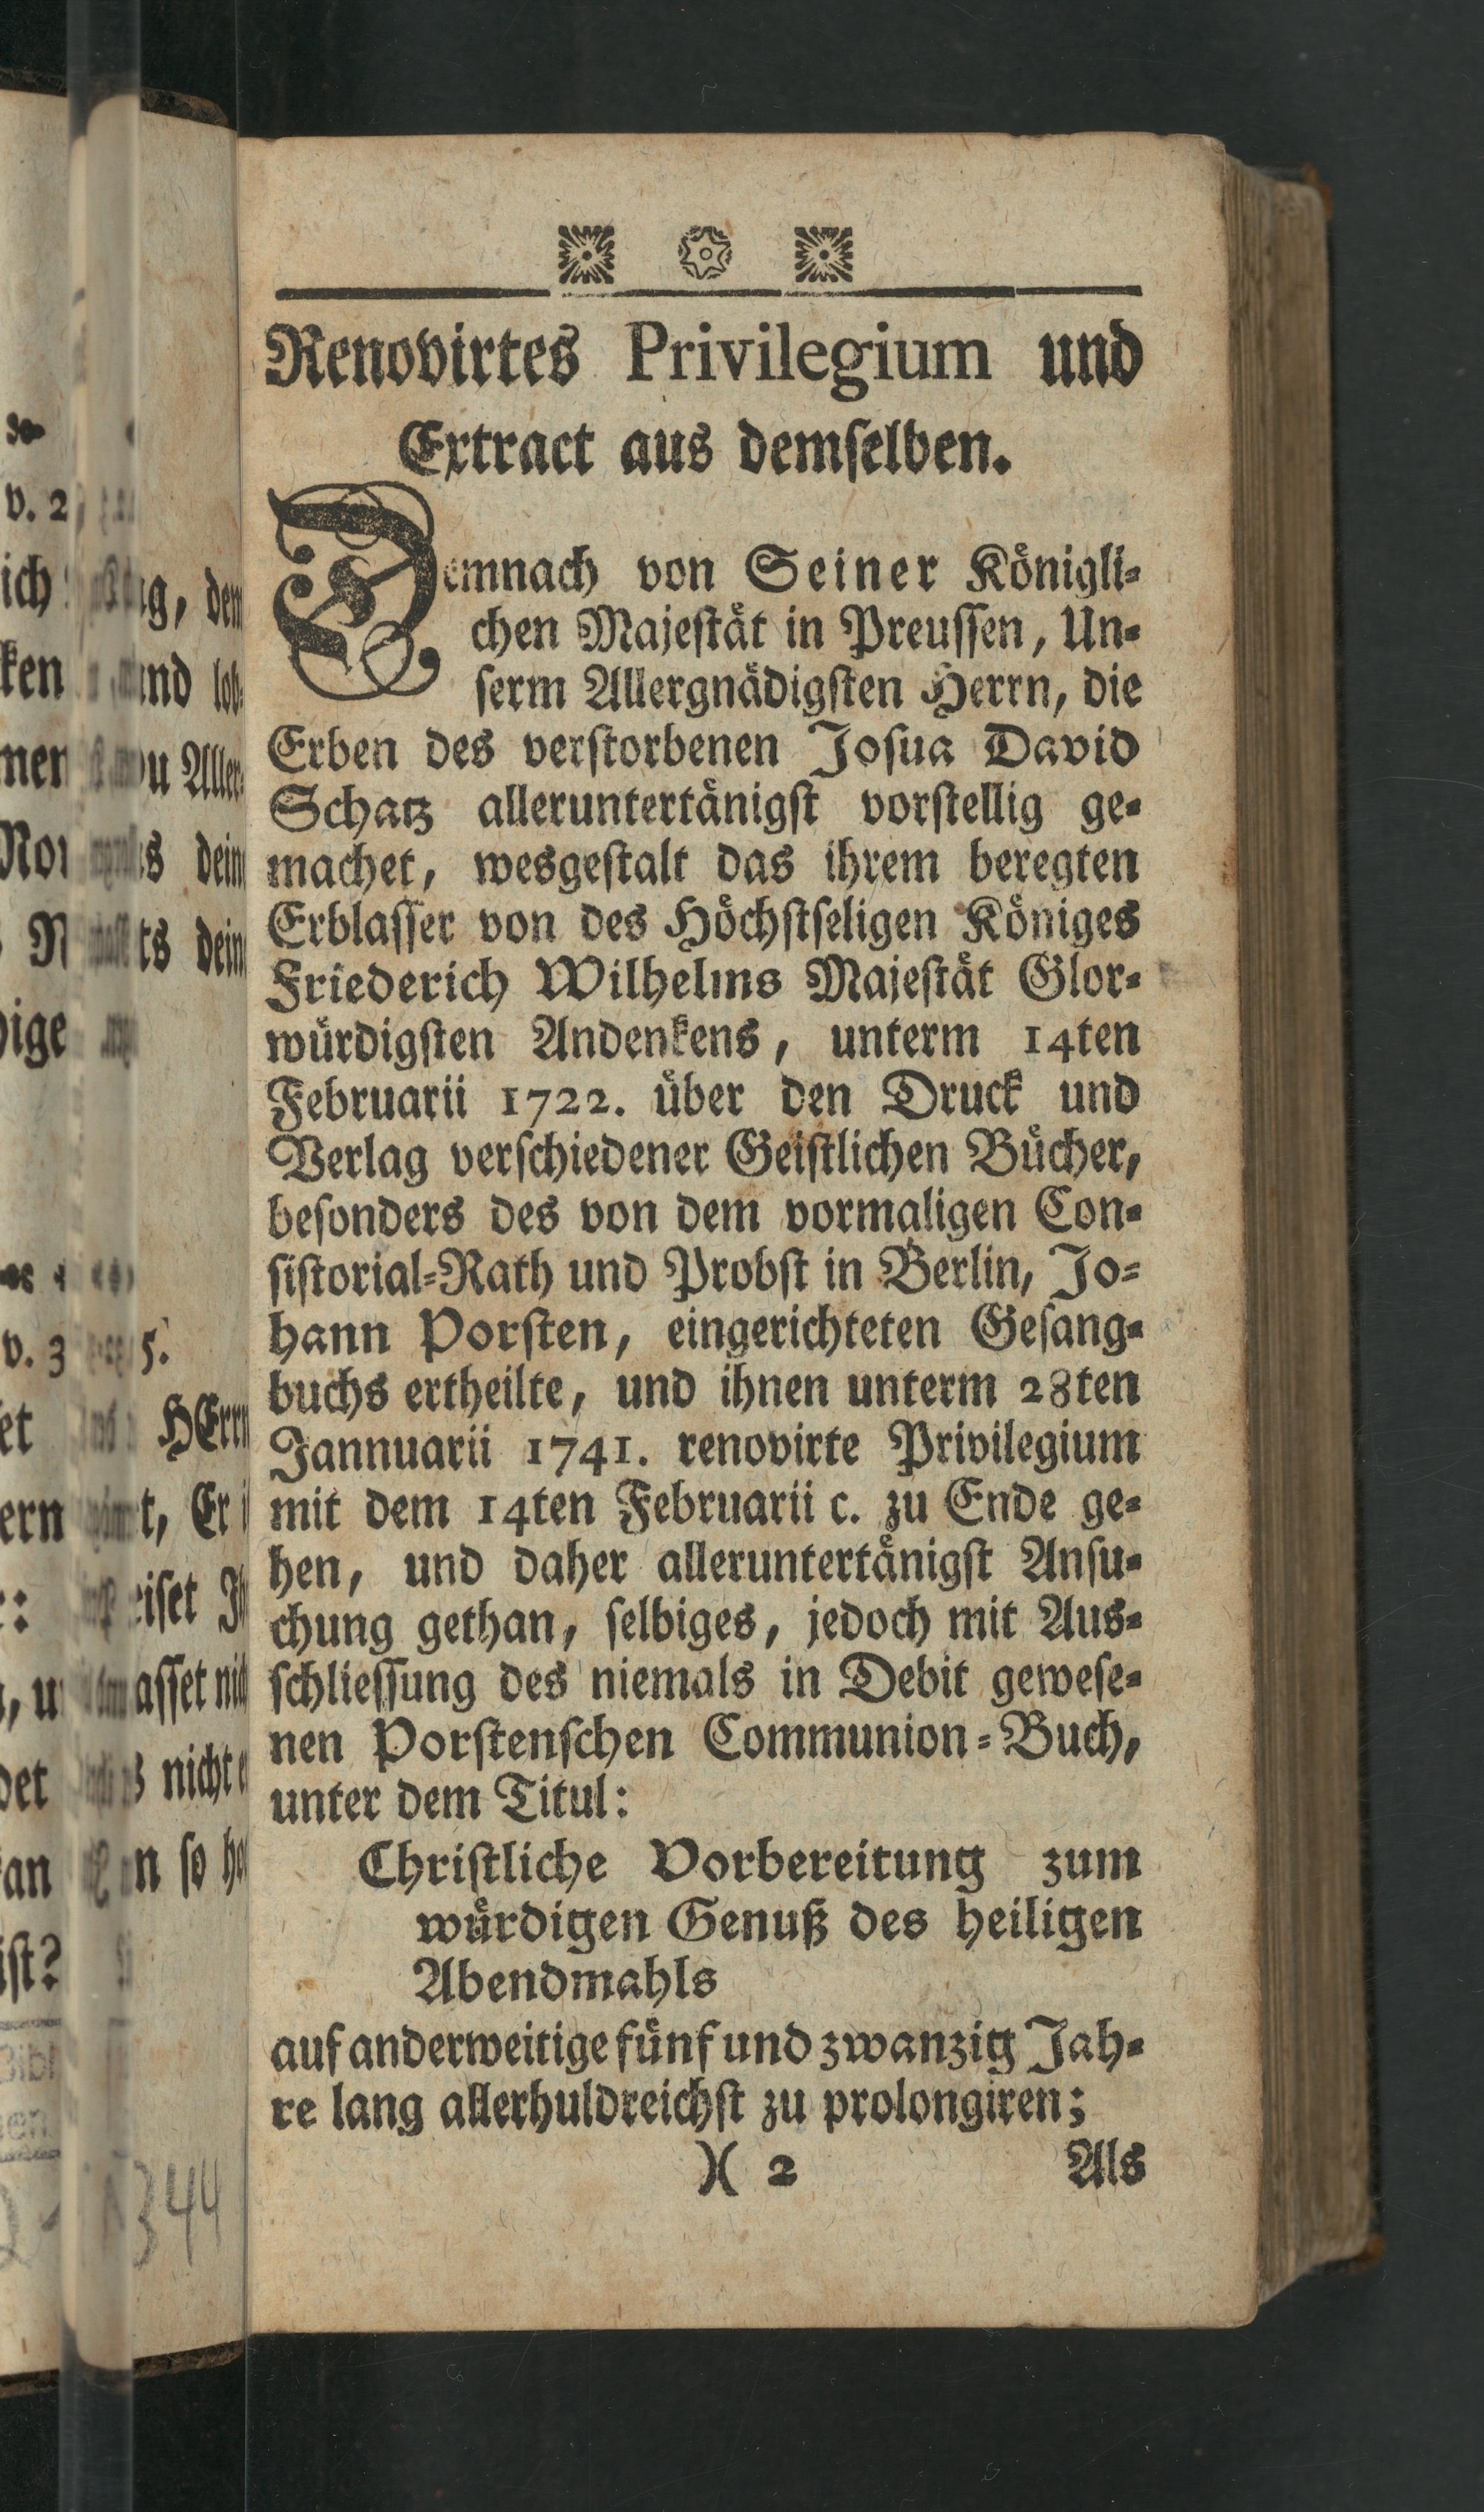 Renovirtes Privilegium und
Extract aus demſelben.
Demnach von Seiner Königli-
chen Majeſtät in Preuſſen, Un-
ſerm Allergnädigſten Herrn, die
Erben des verſtorbenen Joſua David
Schatz alleruntertänigſt vorſtellig ge-
machet, wesgeſtalt das ihrem beregten
Erblaſſer von des Höchſtſeligen Königes
Friederich Wilhelms Majeſtät Glor-
würdigſten Andenkens, unterm 14ten
Februarii 1722. über den Druck und
Verlag verſchiedener Geiſtlichen Bücher,
beſonders des von dem vormaligen Con-
ſiſtorial-Rath und Probſt in Berlin, Jo-
hann Porſten, eingerichteten Geſang-
buchs ertheilte, und ihnen unterm 28ten
Jannuarii 1741. renovirte Privilegium
mit dem 14ten Februarii c. zu Ende ge-
hen, und daher alleruntertänigſt Anſu-
chung gethan, ſelbiges, jedoch mit Aus-
ſchlieſſung des niemals in Debit geweſe-
nen Porſtenſchen Communion-Buch,
unter dem Titul:
Chriſtliche Vorbereitung zum
würdigen Genuß des heiligen
Abendmahls
auf anderweitige fünf und zwanzig Jah-
re lang allerhuldreichſt zu prolongiren;
)( 2 Als